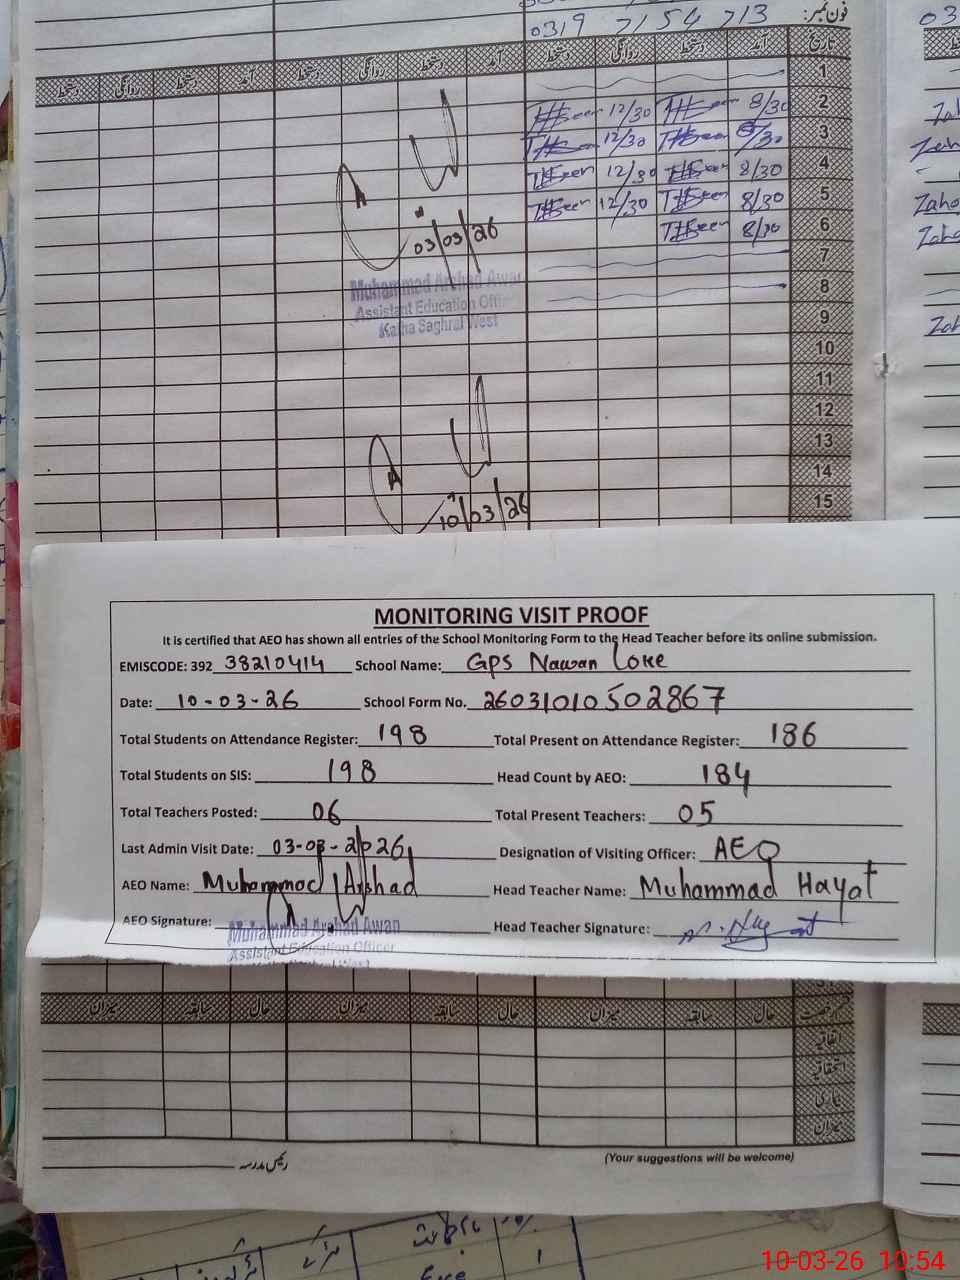 فون نمبر: 0319 7154 713
تاریخ آمد دستخط روانگی دستخط آمد دستخط روانگی دستخط
1
2 8/30 12/30
3 8/30 12/30
4 8/30 12/30
5 8/30 12/30
6 8/30
7
8
9
10
11
12
13
14
15
03/03/26
Muhammad Arshad Awan
Assistant Education Officer
Katha Saghral West
10/03/26
MONITORING VISIT PROOF
It is certified that AEO has shown all entries of the School Monitoring Form to the Head Teacher before its online submission.
EMISCODE: 392 38210414 School Name: GPS Nawan Loke
Date: 10-03-26 School Form No. 26031010502867
Total Students on Attendance Register: 198 Total Present on Attendance Register: 186
Total Students on SIS: 198 Head Count by AEO: 184
Total Teachers Posted: 06 Total Present Teachers: 05
Last Admin Visit Date: 03-03-2026 Designation of Visiting Officer: AEO
AEO Name: Muhammad Arshad Head Teacher Name: Muhammad Hayat
AEO Signature: Head Teacher Signature: M. Hayat
Muhammad Arshad Awan
Assistant Education Officer
حال سابقہ میزان حال سابقہ میزان حال سابقہ میزان
اتفاقیہ
استحقاقیہ
بیماری
میزان
رئیس مدرسہ
(Your suggestions will be welcome)
10-03-26 10:54